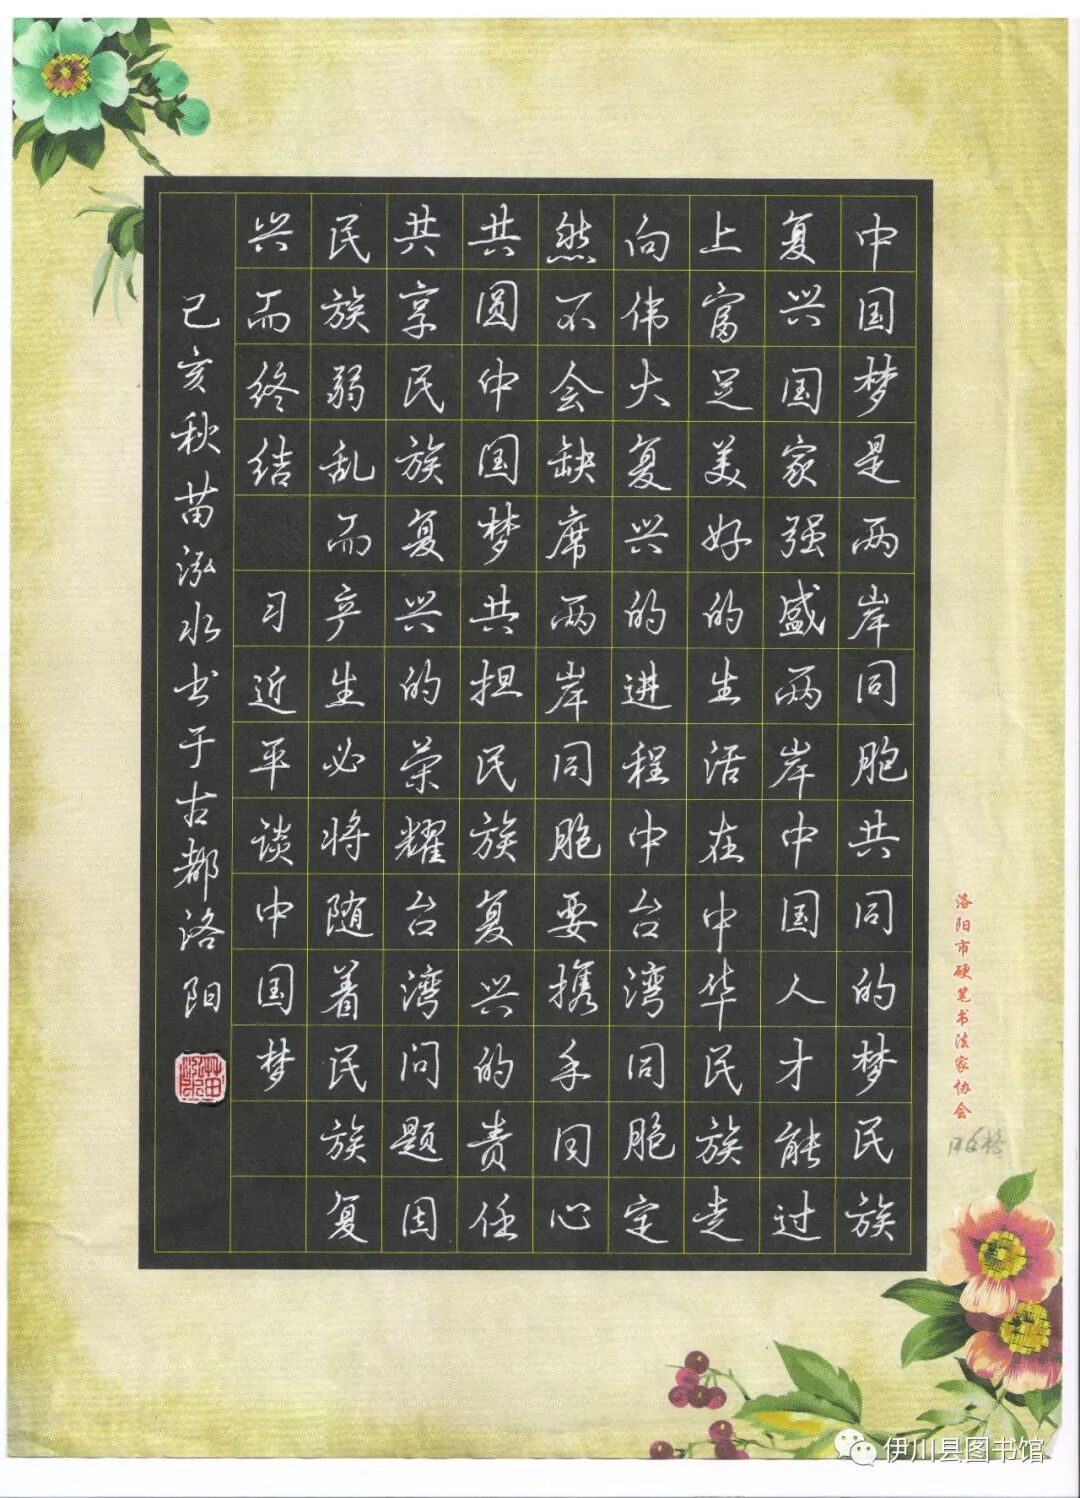 中国梦是两岸同胞共同的梦民族
复兴国家强盛两岸中国人才能过
上富足美好的生活在中华民族走
向伟大复兴的进程中台湾同胞定
然不会缺席两岸同胞要携手同心
共圆中国梦共担民族复兴的责任
共享民族复兴的荣耀台湾问题因
民族弱乱而产生必将随着民族复
兴而终结 习近平谈中国梦
己亥秋苗泓水书于古都洛阳
洛阳市硬笔书法家协会
伊川县图书馆